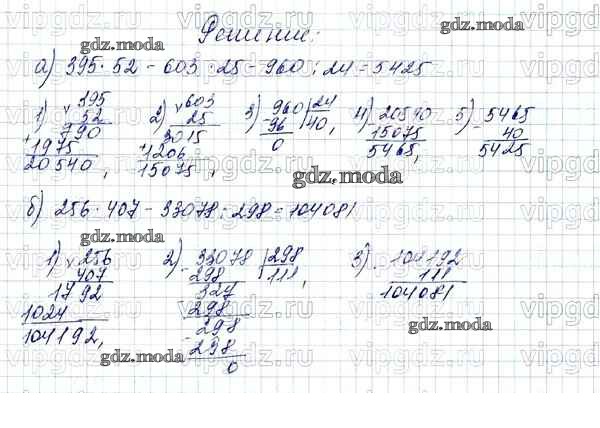 Решение:
а) 395 · 52 - 603 · 25 - 960 : 24 = 5425
1) × 395
52
790
+ 1975
20540,
2) × 603
25
3015
+ 1206
15075,
3) 960 | 24
96 | 40,
0
4) 20540
15075
5465,
5) 5465
40
5425
б) 256 · 407 - 33078 : 298 = 104081
1) × 256
407
1792
1024
104192,
2) 33078 | 298
298 | 111,
327
298
298
298
0
3) 104192
111
104081
gdz.moda
gdz.moda
gdz.moda
gdz.moda
gdz.moda
gdz.moda
gdz.moda
vipgdz.ru